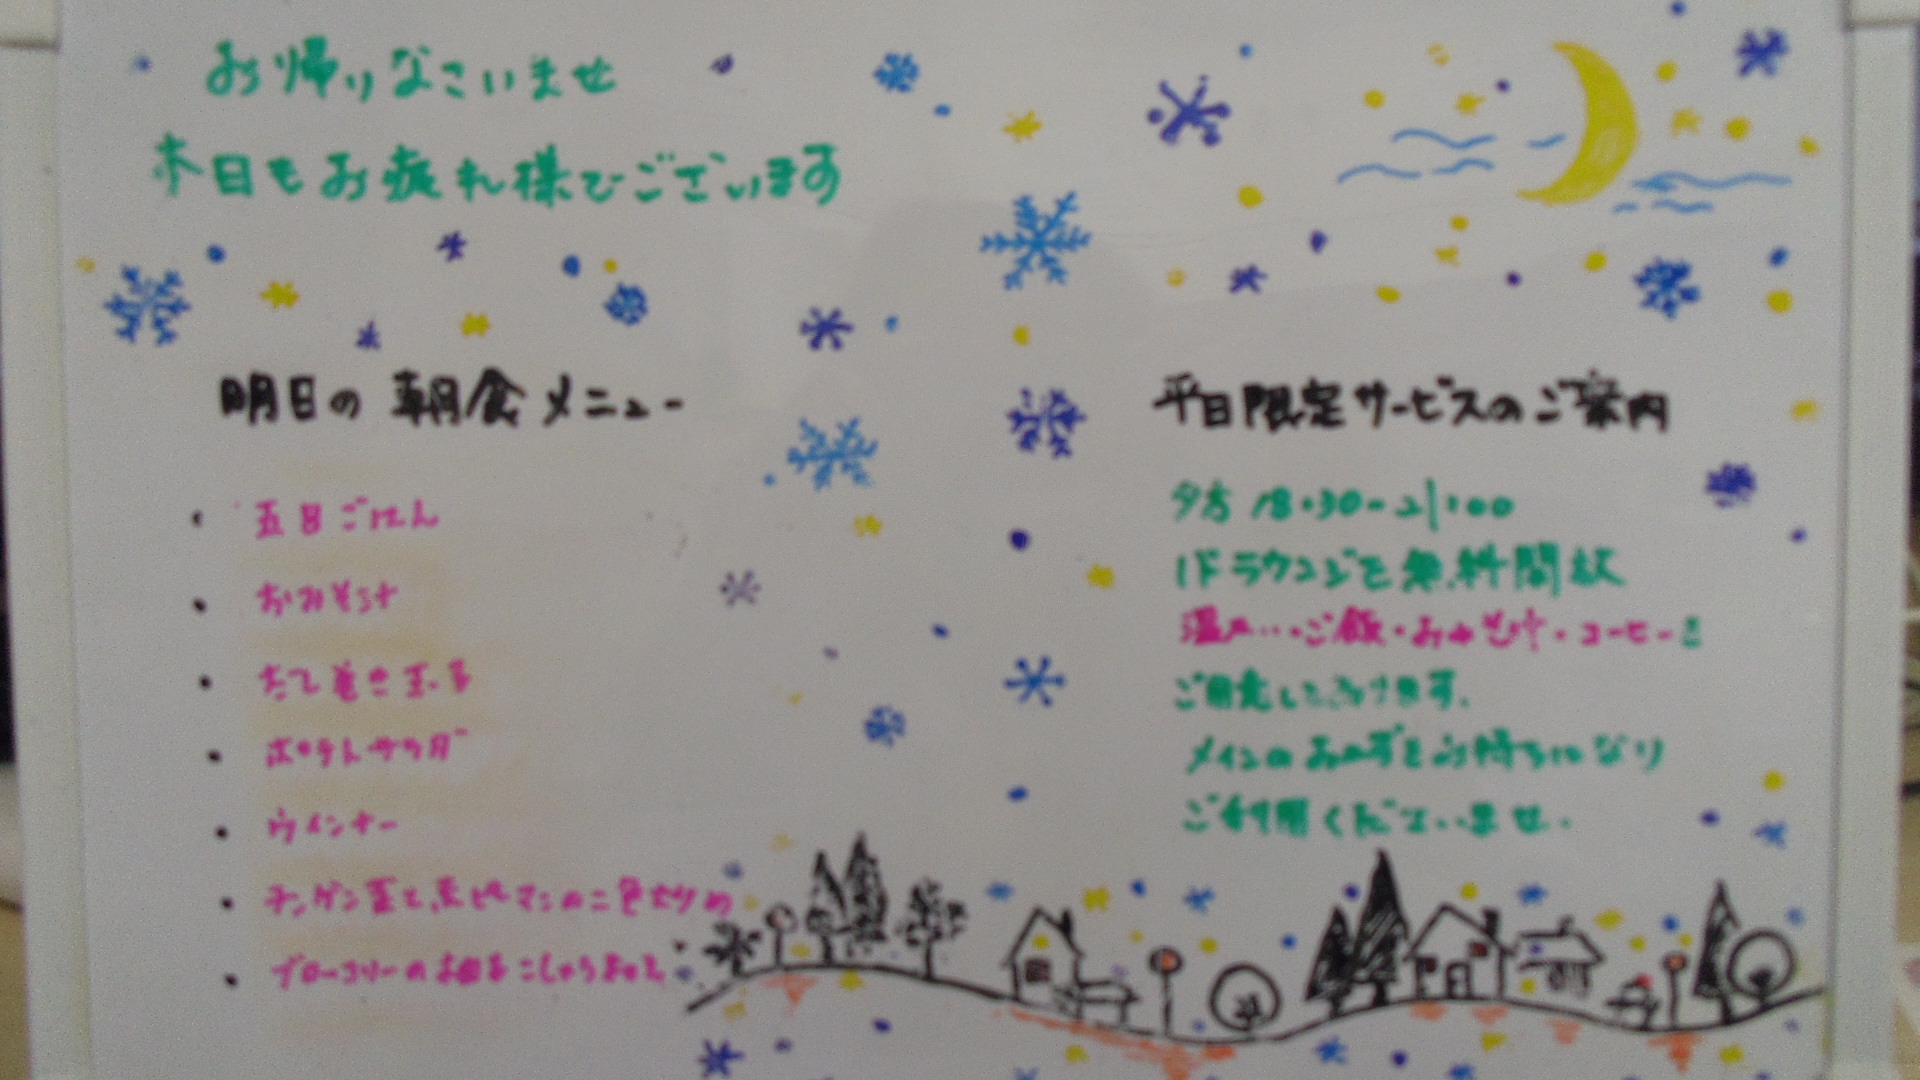 お帰りなさいませ
本日もお疲れ様でございます
明日の朝食メニュー
・五目ごはん
・おみそ汁
・だし巻き玉子
・ポテトサラダ
・ウインナー
・チンゲン菜と赤ピーマンの二色炒め
・ブロッコリーの
平日限定サービスのご案内
夕方 18:30-21:00
1Fラウンジを無料開放
温か…ご飯・おみそ汁・コーヒーを
ご用意しております.
メインのおかずをお持ちになり
ご利用くださいませ.